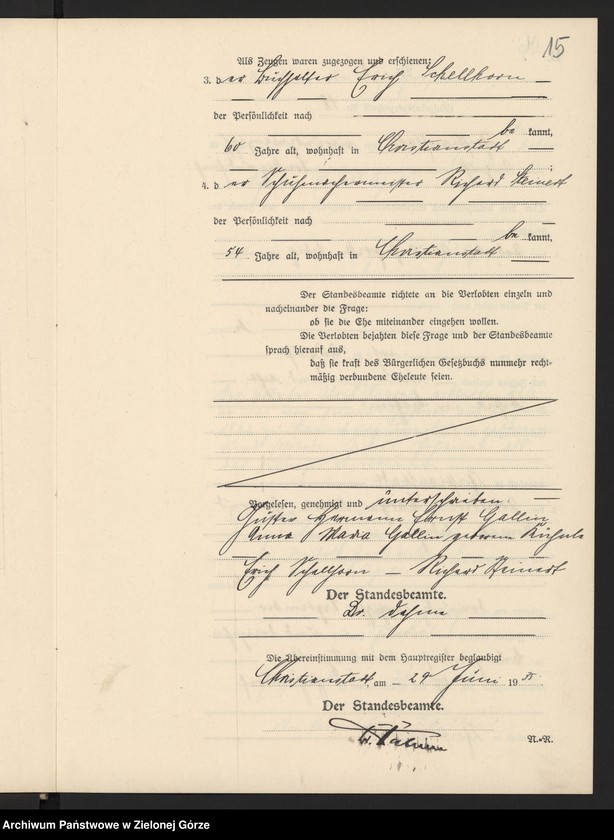 15
Als Zeugen waren zugezogen und erschienen:
3. der Buchhalter Erich Schellhorn
der Persönlichkeit nach
be kannt,
60 Jahre alt, wohnhaft in Christianstadt
;
4. der Schuhmachermeister Richard Steinert
der Persönlichkeit nach
be kannt,
54 Jahre alt, wohnhaft in Christianstadt
Der Standesbeamte richtete an die Verlobten einzeln und
nacheinander die Frage:
ob sie die Ehe miteinander eingehen wollen.
Die Verlobten bejahten diese Frage und der Standesbeamte
sprach hierauf aus,
daß sie kraft des Bürgerlichen Gesetzbuchs nunmehr recht-
mäßig verbundene Eheleute seien.
Vorgelesen, genehmigt und unterschrieben.
Gustav Hermann Ernst Gallin
Anna Maria Gallin geborene
Erich Schellhorn — Richard Steinert
Der Standesbeamte.
Dr. Dehne
Die Übereinstimmung mit dem Hauptregister beglaubigt
Christianstadt, am 29 Juni 19
Der Standesbeamte.
N.-R.
Archiwum Państwowe w Zielonej Górze